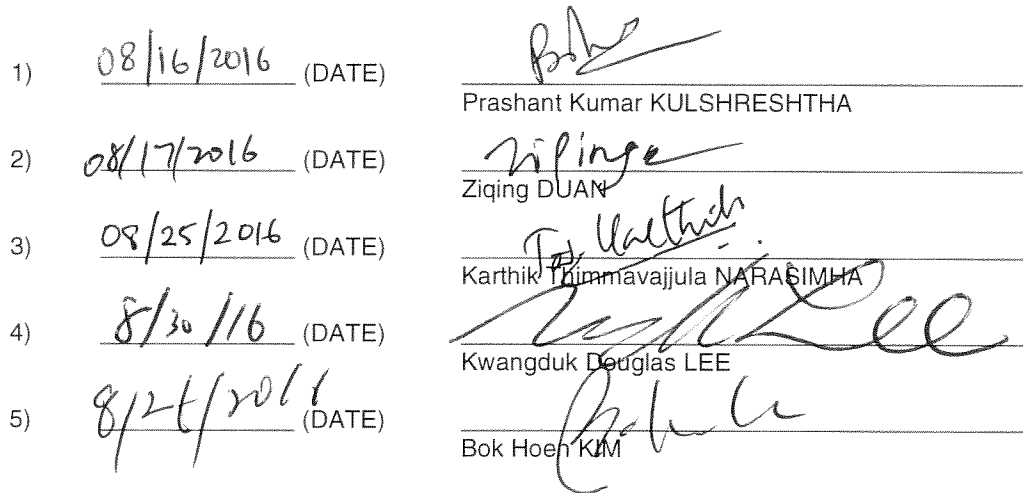 1) 08/16/2016 (DATE)
Prashant Kumar KULSHRESHTHA
2) 08/17/2016 (DATE)
Ziqing DUAN
3) 08/25/2016 (DATE)
Karthik Thimmavajjula NARASIMHA
4) 8/30/16 (DATE) Lee
Kwangduk Douglas LEE
5) (DATE)
Bok Hoen KIM